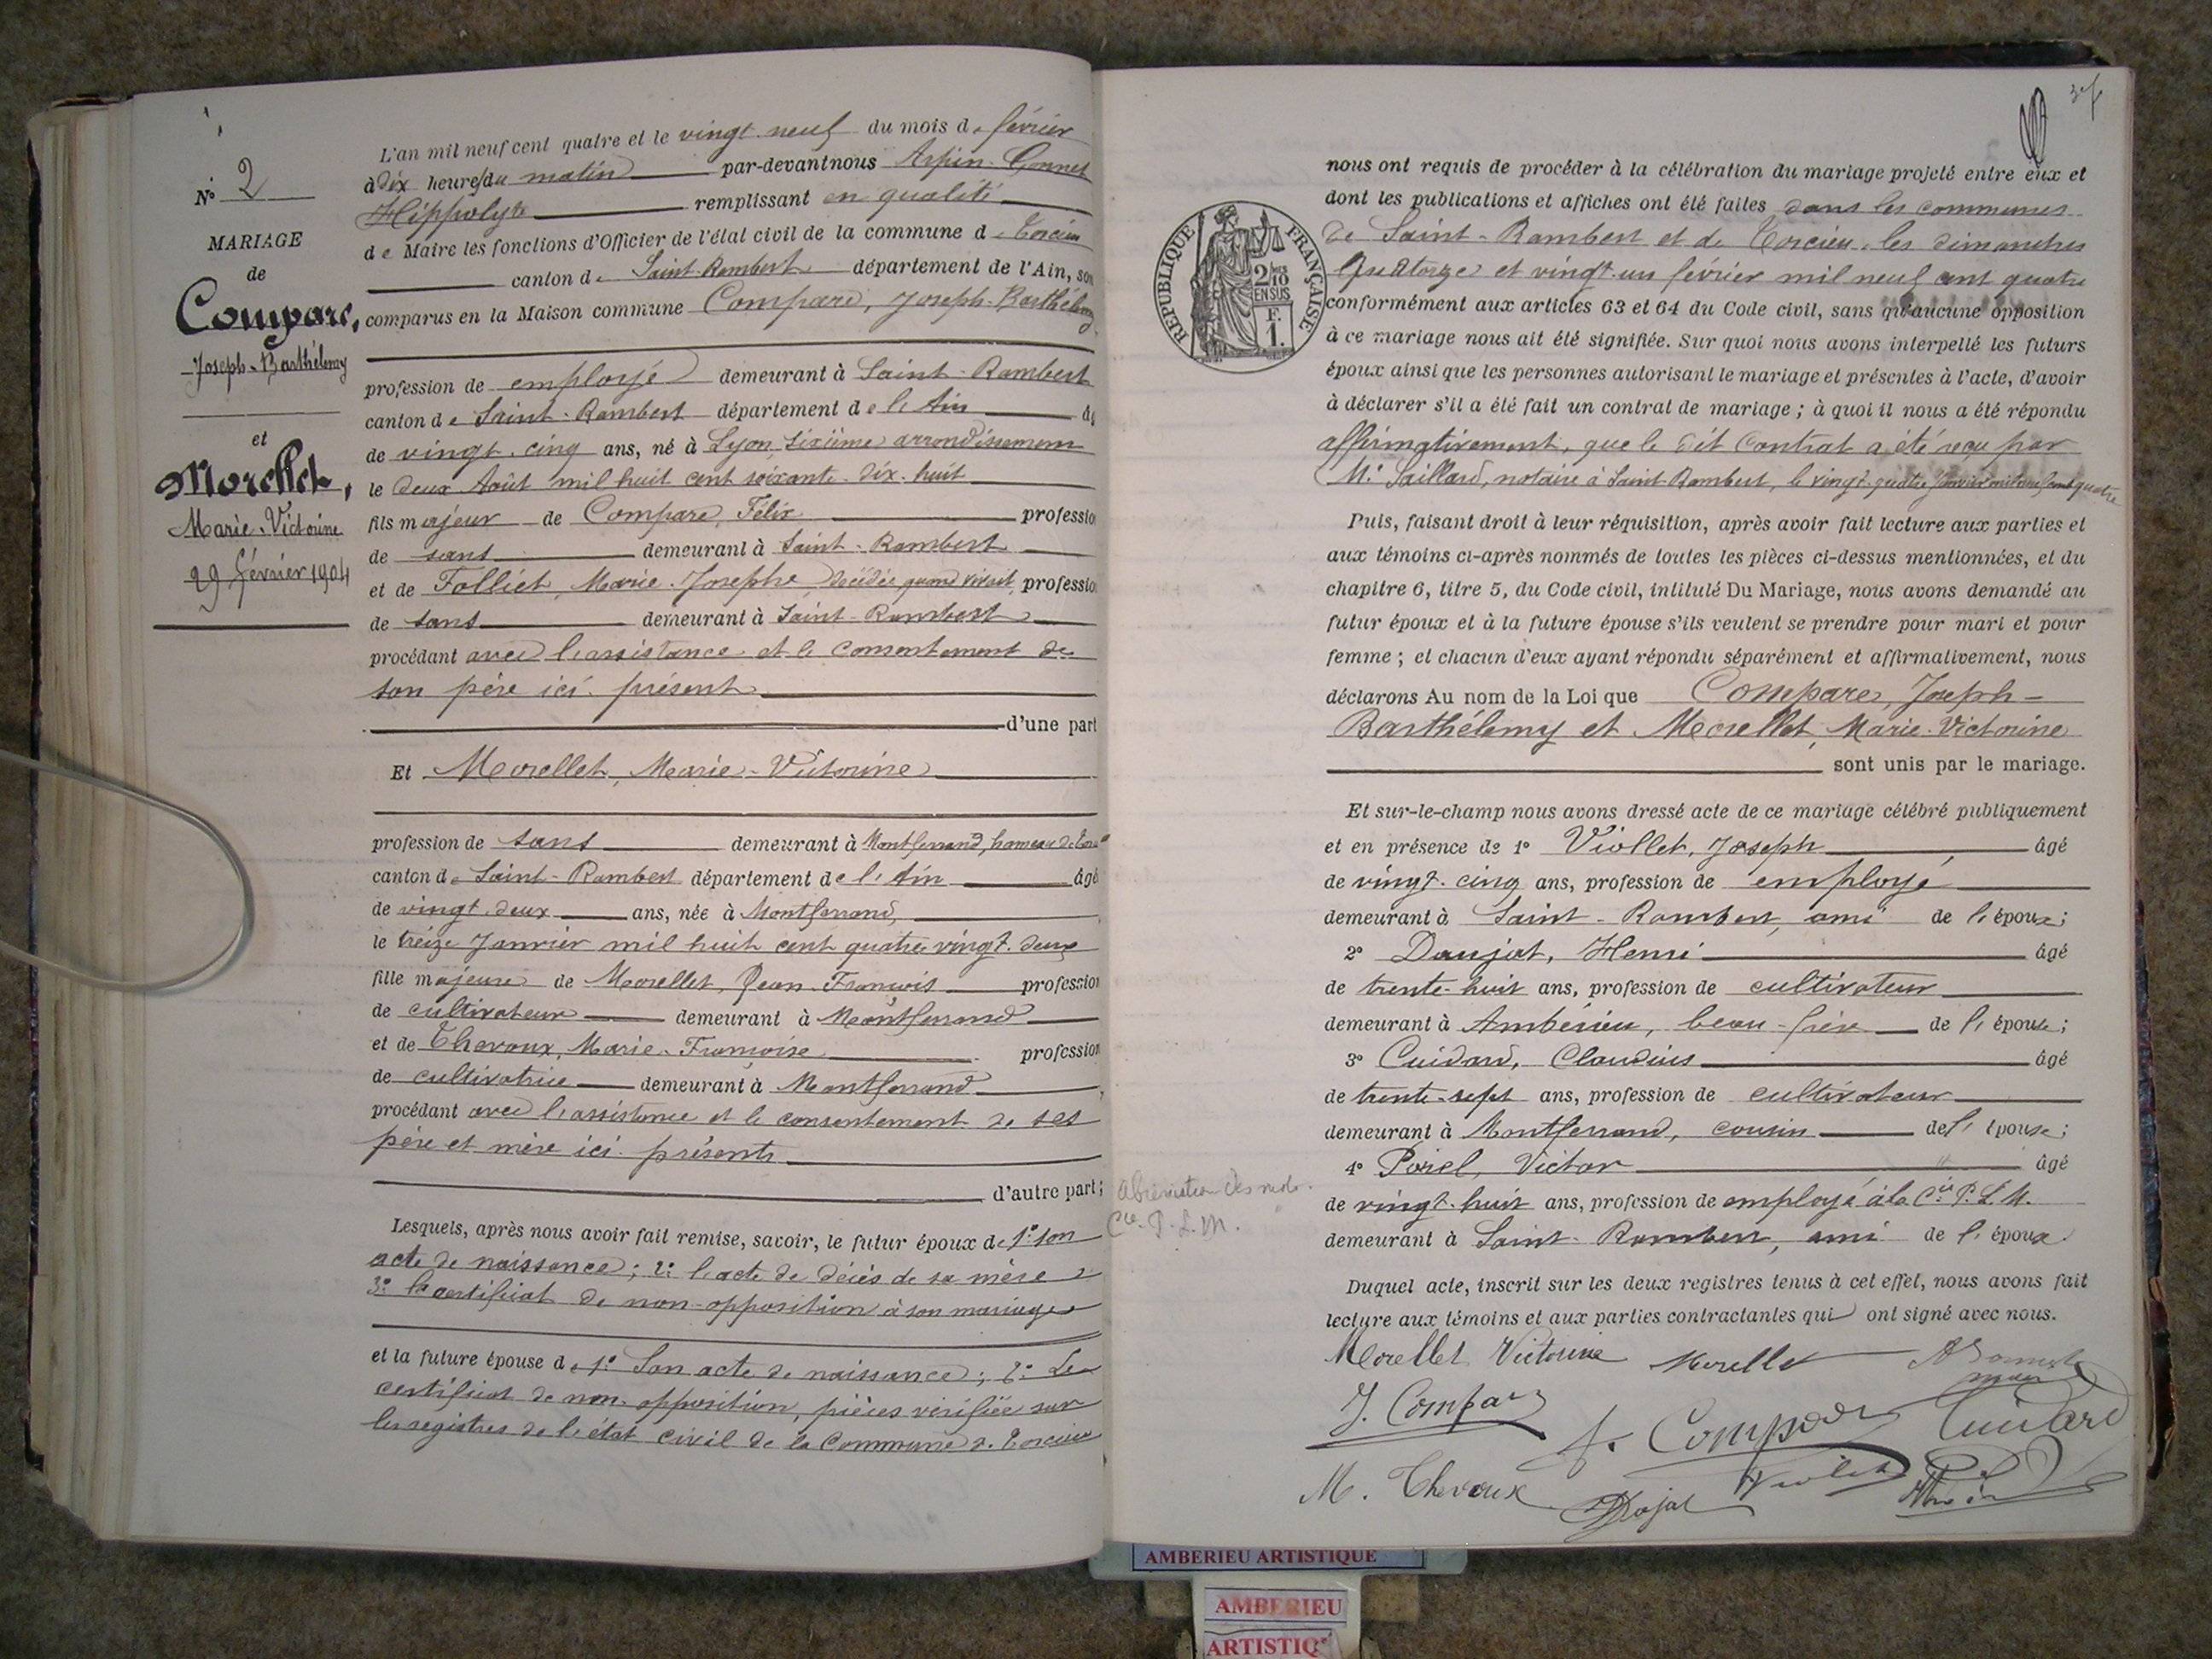 N° 2
MARIAGE
de
Compare,
Joseph-Barthélemy
et
Morellet,
Marie-Victoine
29 février 1904
L'an mil neuf cent quatre et le vingt-neuf du mois de février
à dix heures du matin par-devant nous Arpin-Gonnet
Hippolyte remplissant en qualité
de Maire les fonctions d'Officier de l'état civil de la commune de Torcieu
canton de Saint-Rambert département de l'Ain, son
comparus en la Maison commune Compare, Joseph-Barthélemy
profession de employé demeurant à Saint-Rambert
canton de Saint-Rambert département de l'Ain âg
de vingt-cinq ans, né à Lyon, sixième arrondissement
le deux Août mil huit cent soixante-dix-huit
fils majeur de Compare, Félix profession
de sans demeurant à Saint-Rambert
et de Folliet, Marie-Josephe, décédée quand vivait, profession
de sans demeurant à Saint-Rambert
procédant avec l'assistance et le consentement de
son père ici présent
d'une part
Et Morellet, Marie-Victorine
profession de sans demeurant à Montferrand, hameau de
canton de Saint-Rambert département de l'Ain âgé
de vingt-deux ans, née à Montferrand,
le treize Janvier mil huit cent quatre-vingt-deux
fille majeure de Morellet, Jean-François profession
de cultivateur demeurant à Montferrand
et de Thevoux, Marie-Françoise profession
de cultivatrice demeurant à Montferrand
procédant avec l'assistance et le consentement de ses
père et mère ici présents
d'autre part;
Lesquels, après nous avoir fait remise, savoir, le futur époux de 1° son
acte de naissance; 2° l'acte de décès de sa mère
3° le certificat de non-opposition à son mariage
et la future épouse de 1° Son acte de naissance; 2° Le
certificat de non-opposition, pièces vérifiée sur
les registres de l'état civil de la Commune de Torcieu
37
nous ont requis de procéder à la célébration du mariage projeté entre eux et
dont les publications et affiches ont été faites dans les communes
de Saint-Rambert et de Torcieu, les dimanches
Quatorze et vingt-un février mil neuf cent quatre
conformément aux articles 63 et 64 du Code civil, sans qu'aucune opposition
à ce mariage nous ait été signifiée. Sur quoi nous avons interpellé les futurs
époux ainsi que les personnes autorisant le mariage et présentes à l'acte, d'avoir
à déclarer s'il a été fait un contrat de mariage; à quoi il nous a été répondu
affirmativement, que le dit Contrat a été reçu par
M° Saillard, notaire à Saint-Rambert, le vingt-quatre Janvier mil neuf cent quatre
RÉPUBLIQUE FRANÇAISE
2/10
EN SUS
F.
1.
Puis, faisant droit à leur réquisition, après avoir fait lecture aux parties et
aux témoins ci-après nommés de toutes les pièces ci-dessus mentionnées, et du
chapitre 6, titre 5, du Code civil, intitulé Du Mariage, nous avons demandé au
futur époux et à la future épouse s'ils veulent se prendre pour mari et pour
femme; et chacun d'eux ayant répondu séparément et affirmativement, nous
déclarons Au nom de la Loi que Compare, Joseph-
Barthélemy et Morellet, Marie-Victorine
sont unis par le mariage.
Et sur-le-champ nous avons dressé acte de ce mariage célébré publiquement
et en présence de 1° Viollet, Joseph âgé
de vingt-cinq ans, profession de employé
demeurant à Saint-Rambert, ami de l'époux;
2° Daujat, Henri âgé
de trente-huit ans, profession de cultivateur
demeurant à Ambérieu, beau-frère de l'épouse;
3° Cuidard, Claudius âgé
de trente-sept ans, profession de cultivateur
demeurant à Montferrand, cousin de l'épouse;
4° Poisel, Victor âgé
de vingt-huit ans, profession de employé à la Cie P. L. M.
demeurant à Saint-Rambert, ami de l'époux.
Duquel acte, inscrit sur les deux registres tenus à cet effet, nous avons fait
lecture aux témoins et aux parties contractantes qui ont signé avec nous.
Abréviation des mots
Cie. P. L. M.
Morellet Victorine Morellet
maire
J. Compare
f. Compare Cuidard
M. Thevoux Dojat Violet
AMBERIEU ARTISTIQUE
AMBERIEU
ARTISTIQ